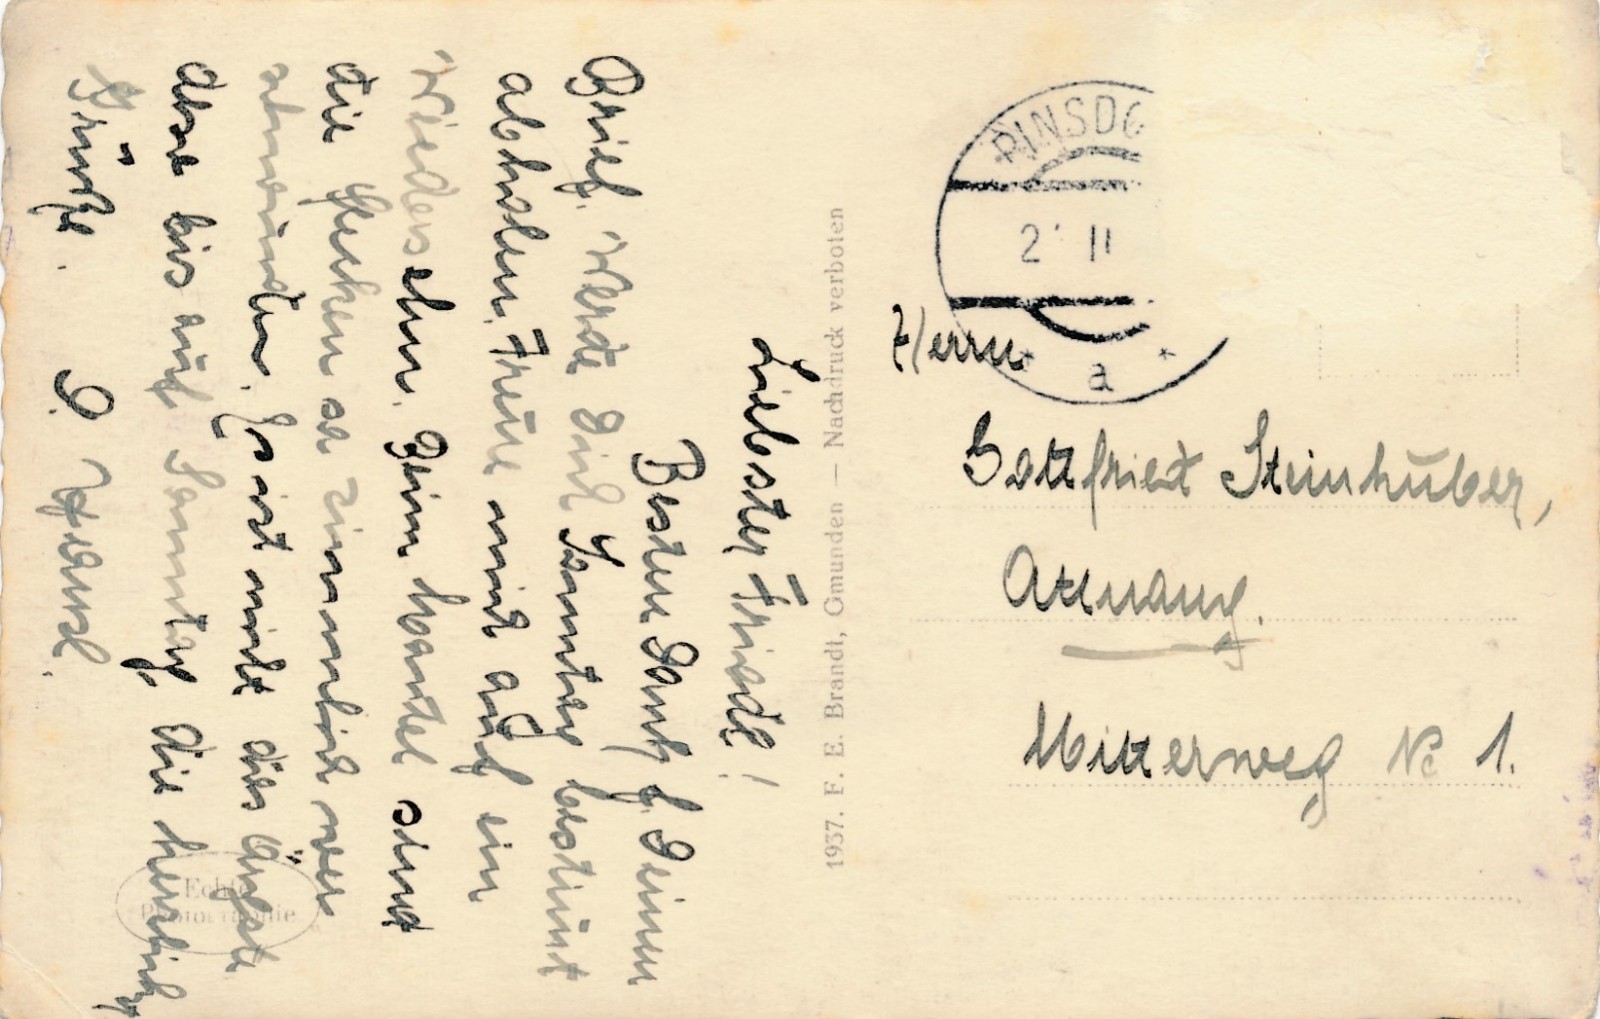 Liebster Friedl!
Besten Dank f. Deinen
Brief. Werde Dich Samstag bestimt
abholen. Freue mich auf ein
Wiedersehen. Beim hantel sind
die ziemlich ver
schwunden. Es ist nicht das ärgste
also bis auf Samstag, die herzlichst
Grüße.
Hansl.
1937. F. E. Brandt, Gmunden — Nachdruck verboten
Echte
Photographie
PINSDO
2. II
a
Herrn
Gottfried Steinhuber,
Attnang.
Mitterweg No 1.